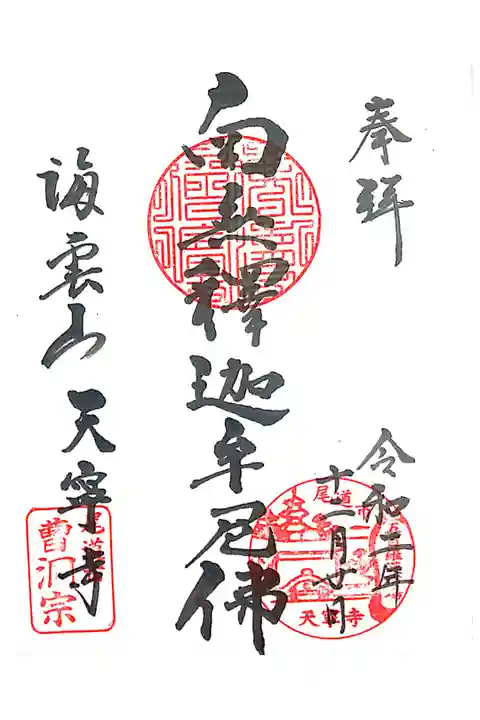 奉拜
令和二年
十一月廿日
南無釋迦牟尼佛
海雲山 天寧寺
尾道市
天寧寺
曹洞宗